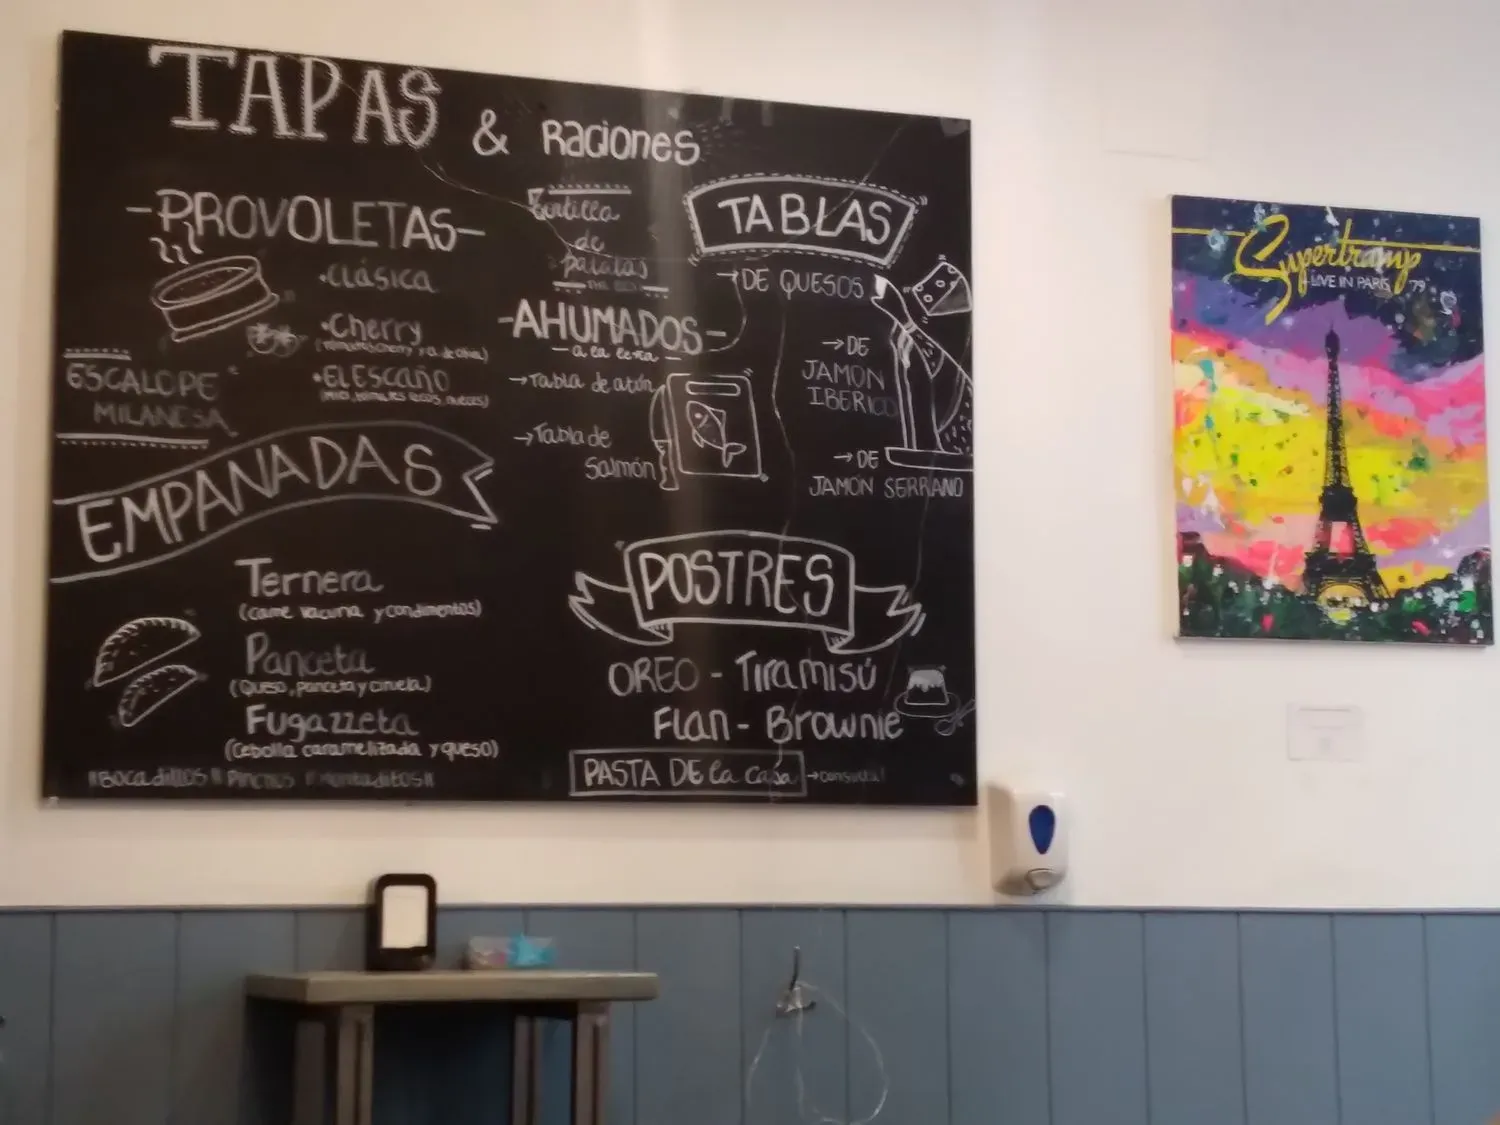 TAPAS & Raciones
-PROVOLETAS-
•CLÁSICA
•Cherry
•EL ESCAÑO
ESCALOPE
MILANESA
EMPANADAS
Ternera
(carne vacuna y condimentos)
Panceta
(Queso, panceta y ciruela)
Fugazzeta
(Cebolla caramelizada y queso)
"Bocadillos" Pinchos "Montaditos"
Tortilla
de
patatas
-AHUMADOS-
→Tabla de atún
→Tabla de
Salmón
TABLAS
→DE QUESOS
→DE
JAMÓN
IBERICO
→DE
JAMÓN SERRANO
POSTRES
OREO - Tiramisú
Flan - Brownie
PASTA DE La Casa
Supertramp
LIVE IN PARIS '79